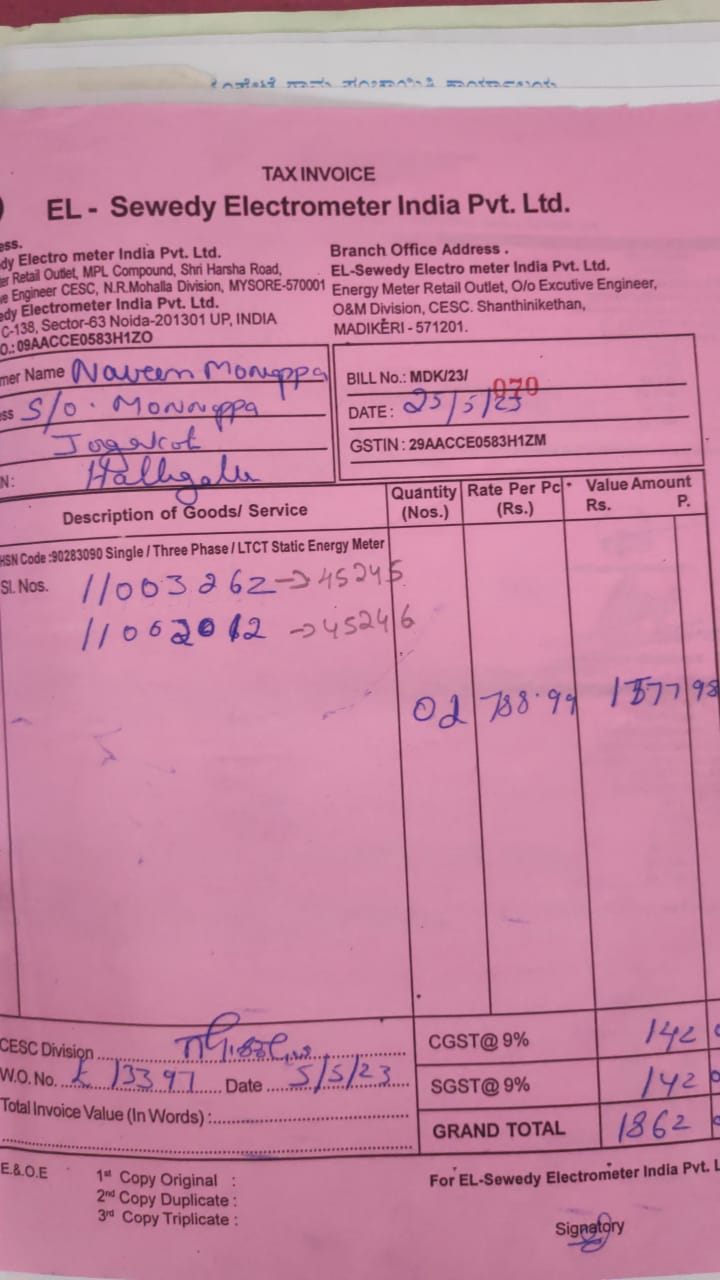 TAX INVOICE
EL - Sewedy Electrometer India Pvt. Ltd.
ess.
dy Electro meter India Pvt. Ltd.
er Retail Outlet, MPL Compound, Shri Harsha Road,
e Engineer CESC, N.R.Mohalla Division, MYSORE-570001
edy Electrometer India Pvt. Ltd.
C-138, Sector-63 Noida-201301 UP, INDIA
O.: 09AACCE0583H1ZO
Branch Office Address .
EL-Sewedy Electro meter India Pvt. Ltd.
Energy Meter Retail Outlet, O/o Excutive Engineer,
O&M Division, CESC. Shanthinikethan,
MADIKERI - 571201.
mer Name Naveen Monappa
ess S/o. Monnappa
N: Halligalu
BILL No.: MDK/23/ 070
DATE : 25/5/23
GSTIN : 29AACCE0583H1ZM
Description of Goods/ Service Quantity (Nos.) Rate Per Pc (Rs.) Value Amount Rs. P.
HSN Code :90283090 Single / Three Phase / LTCT Static Energy Meter
Sl. Nos. 11003262 → 45245
11002012 → 45246
02 788.99 1577 98
CESC Division
W.O. No. 13397 Date 5/5/23
Total Invoice Value (In Words) :
CGST@ 9% 142
SGST@ 9% 142
GRAND TOTAL 1862
E.&.O.E
1st Copy Original :
2nd Copy Duplicate :
3rd Copy Triplicate :
For EL-Sewedy Electrometer India Pvt. L
Signatory